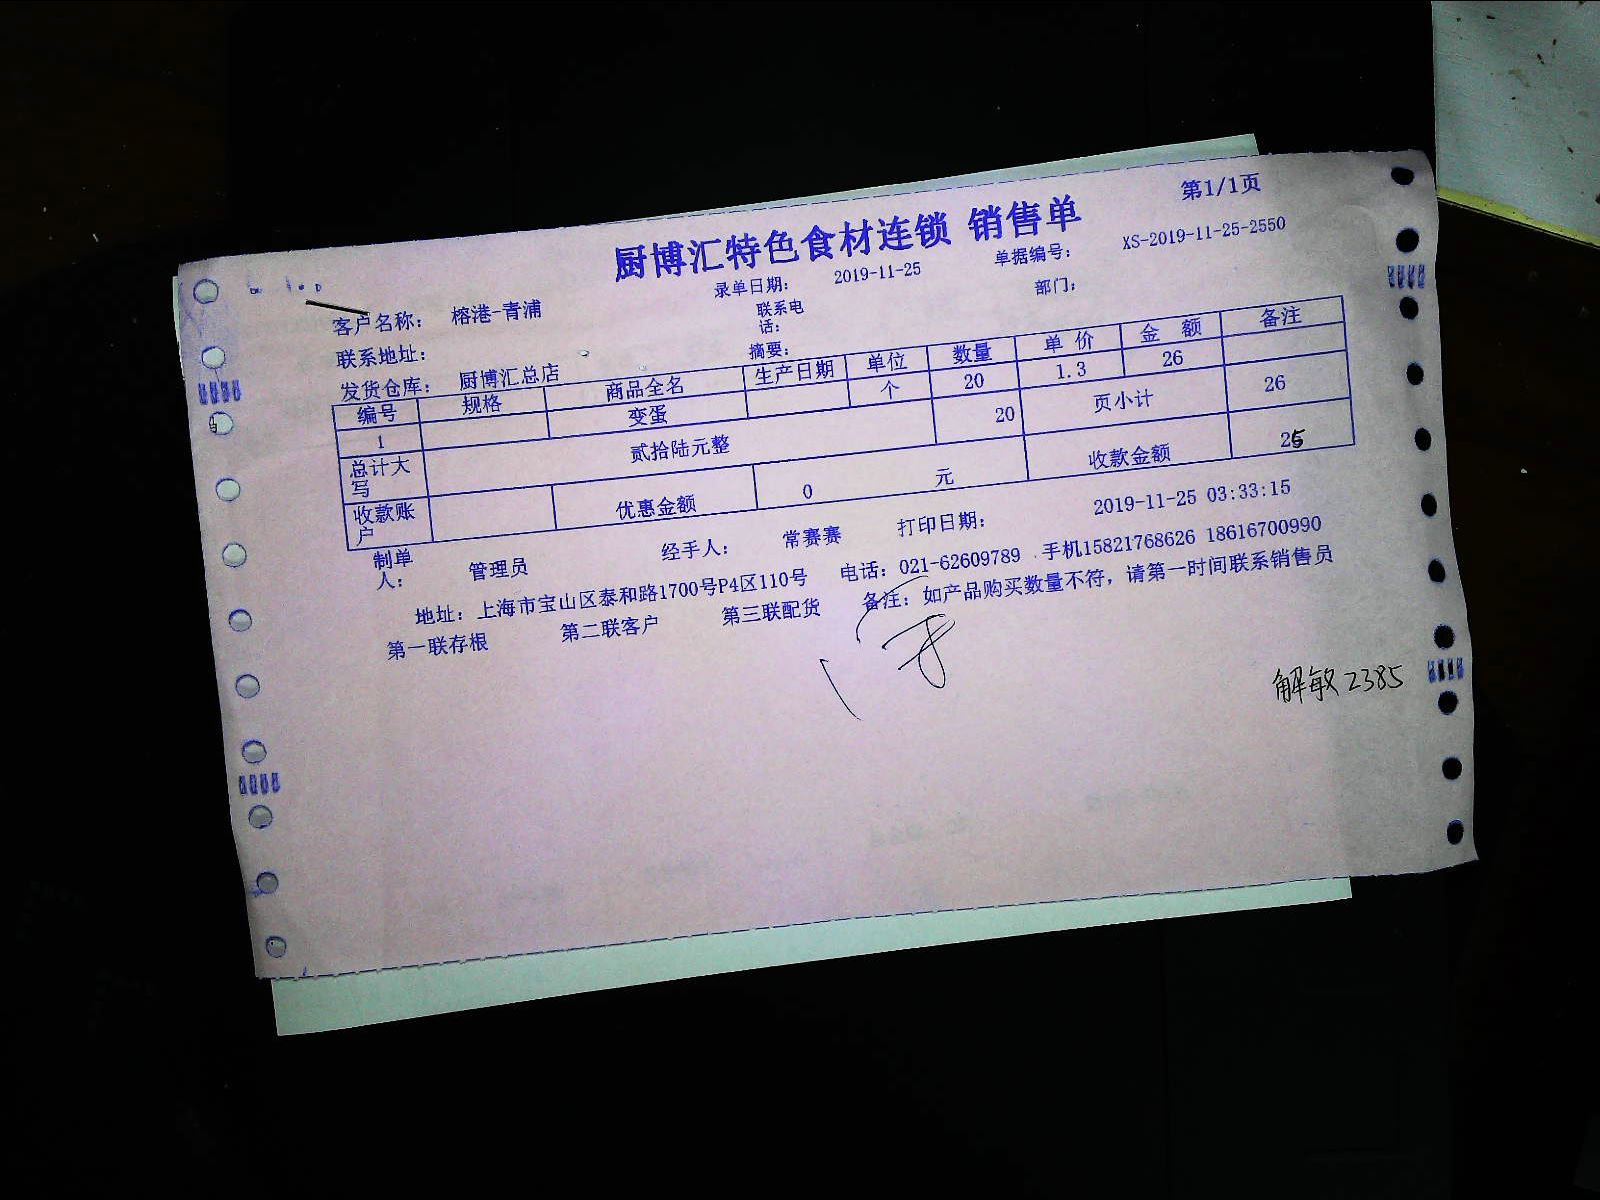 第1/1页
厨博汇特色食材连锁 销售单
录单日期: 2019-11-25 单据编号: XS-2019-11-25-2550
客户名称: 榕港-青浦 联系电话: 部门:
联系地址: 摘要:
发货仓库: 厨博汇总店
编号 规格 商品全名 生产日期 单位 数量 单价 金额 备注
1 变蛋 个 20 1.3 26
总计大写 贰拾陆元整 20 页小计 26
收款账户 优惠金额 0 元 收款金额
制单人: 管理员 经手人: 常赛赛 打印日期: 2019-11-25 03:33:15
地址: 上海市宝山区泰和路1700号P4区110号 电话: 021-62609789 手机15821768626 18616700990
第一联存根 第二联客户 第三联配货 备注: 如产品购买数量不符，请第一时间联系销售员
解敏2385